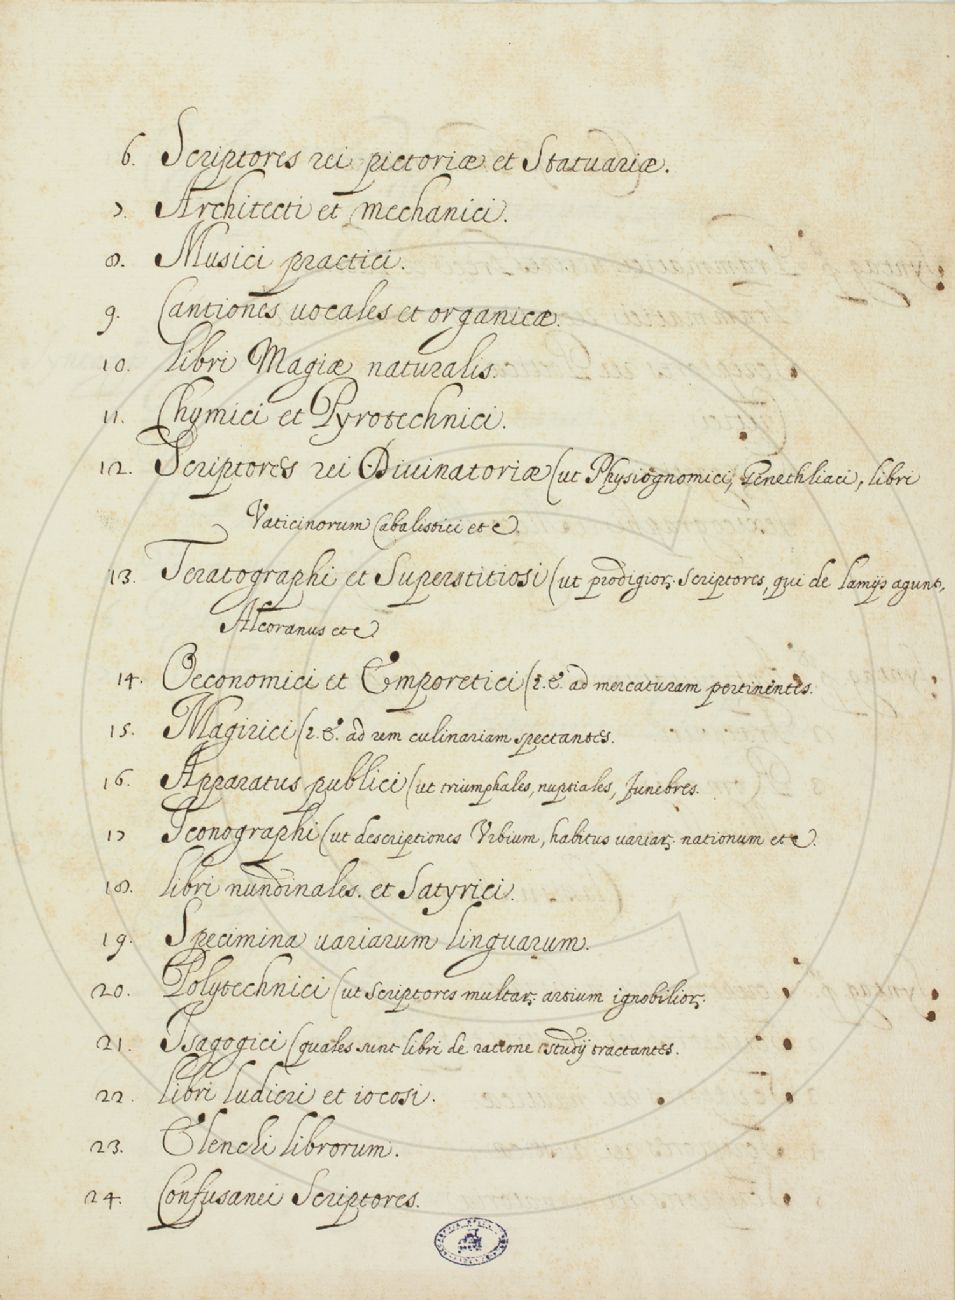 6. Scriptores rei pictoriæ et Statuariæ.
7. Architecti et mechanici.
8. Musici practici.
9. Cantiones vocales et organicæ.
10. libri Magiæ naturalis.
11. Chymici et Pyrotechnici.
12. Scriptores rei Divinatoriæ (ut Physiognomici, Genethliaci, libri
Vaticinorum Cabalistici etc
13. Teratographi et Superstitiosi (ut prodigiorꝝ Scriptores, qui de lamijs agunt,
Alcoranus etc
14. Oeconomici et Emporetici (i.e. ad mercaturam pertinentes.
15. Magirici (i.e. ad rem culinariam spectantes.
16. Apparatus publici (ut triumphales, nuptiales, funebres.
17 Iconographi (ut descriptiones Urbium, habitus variarꝝ nationum etc.
18. libri nundinales. et Satyrici.
19. Specimina variarum linguarum.
20. Polytechnici (ut Scriptores multarꝝ artium ignobiliorꝝ
21. Isagogici (quales sunt libri de ratione studij tractantes.
22. libri ludicri et iocosi.
23. Elenchi librorum.
24. Confusanei Scriptores.